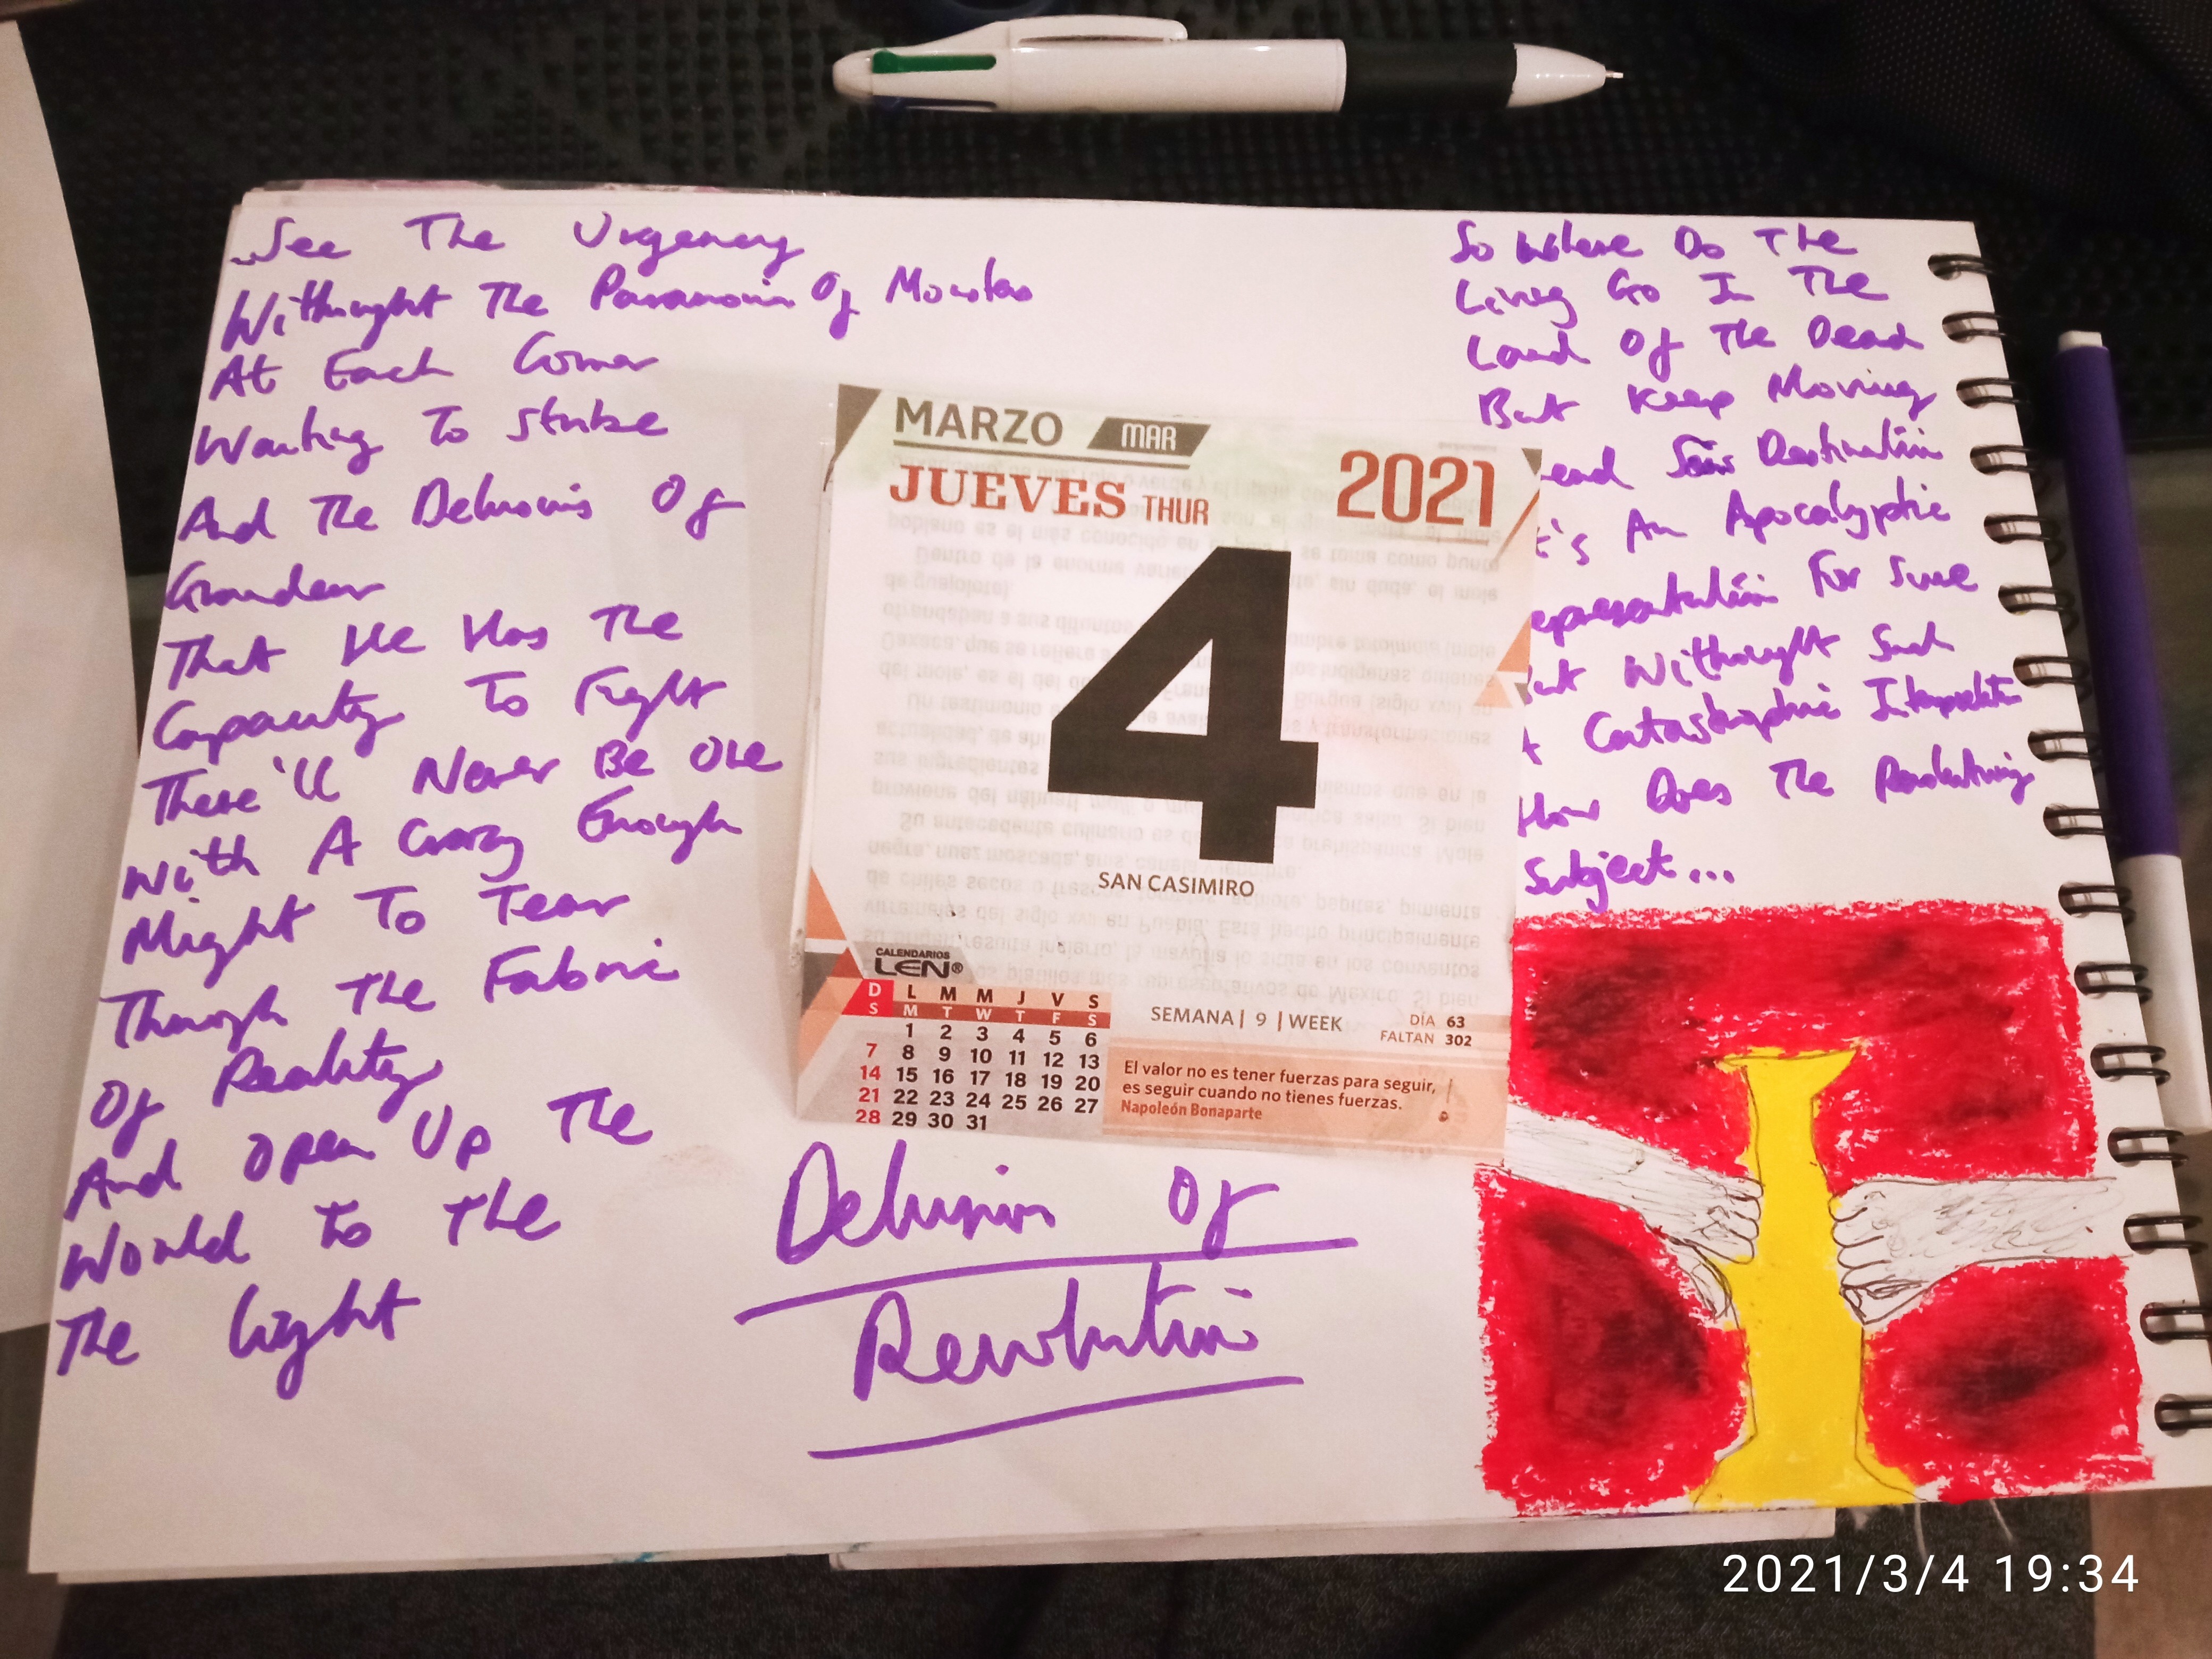 So Where Do The
Living Go In The
Land Of The Dead
But Keep Moving
ead Destination
t's An Apocalyptic
epresentation For Sure
ut Withought Such
A Catastrophic
How Does The
Subject...
...See The Urgency
Withought The Paranoia Of
At Each Corner
Waiting To Strike
And The Delusions Of
Grandeur
That He Has The
Capacity To Fight
There'll Never Be One
With A Crazy Enough
Might To Tear
Through The Fabric
Of Reality
And Open Up The
World To The
The Light
Delusion Of
Revolution
MARZO MAR
JUEVES THUR 2021
4
SAN CASIMIRO
CALENDARIOS
LEN®
D L M M J V S
S M T W T F S
1 2 3 4 5 6
7 8 9 10 11 12 13
14 15 16 17 18 19 20
21 22 23 24 25 26 27
28 29 30 31
SEMANA | 9 | WEEK
DÍA 63
FALTAN 302
El valor no es tener fuerzas para seguir,
es seguir cuando no tienes fuerzas.
Napoleón Bonaparte
2021/3/4 19:34